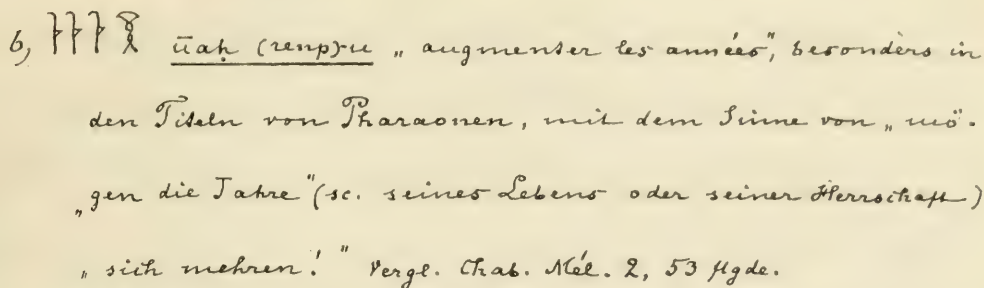 6, 𓆳𓆳𓆳𓎝 ūaḥ (renp)-u „augmenter les années", besonders in
den Titeln von Pharaonen, mit dem Sinne von „mö-
„gen die Jahre" (sc. seines Lebens oder seiner Herrschaft)
„sich mehren!" Vergl. Chab. Mél. 2, 53 flgde.